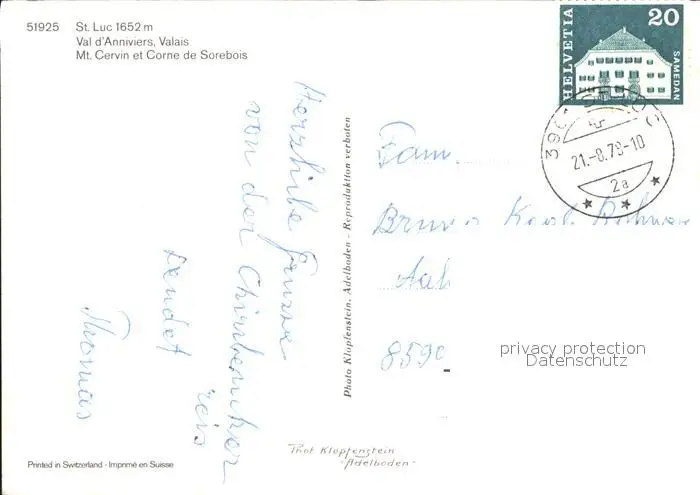 51925 St. Luc 1652 m
Val d'Anniviers, Valais
Mt. Cervin et Corne de Sorebois
HELVETIA 20
SAMEDAN
21.-8.78-10
2a
Herzliche Grüsse
von der
sendet
Thomas
Photo Klopfenstein, Adelboden - Reproduktion verboten
Fam.
Bruno
8590
privacy protection
Datenschutz
Phot Klopfenstein
-Adelboden-
Printed in Switzerland - Imprimé en Suisse